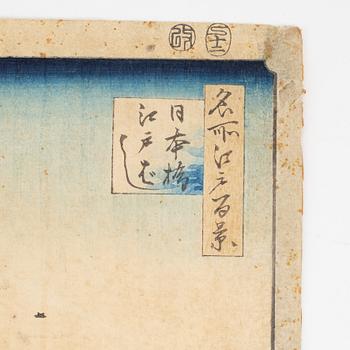 名所江戸百景
日本橋
江戸ばし
改